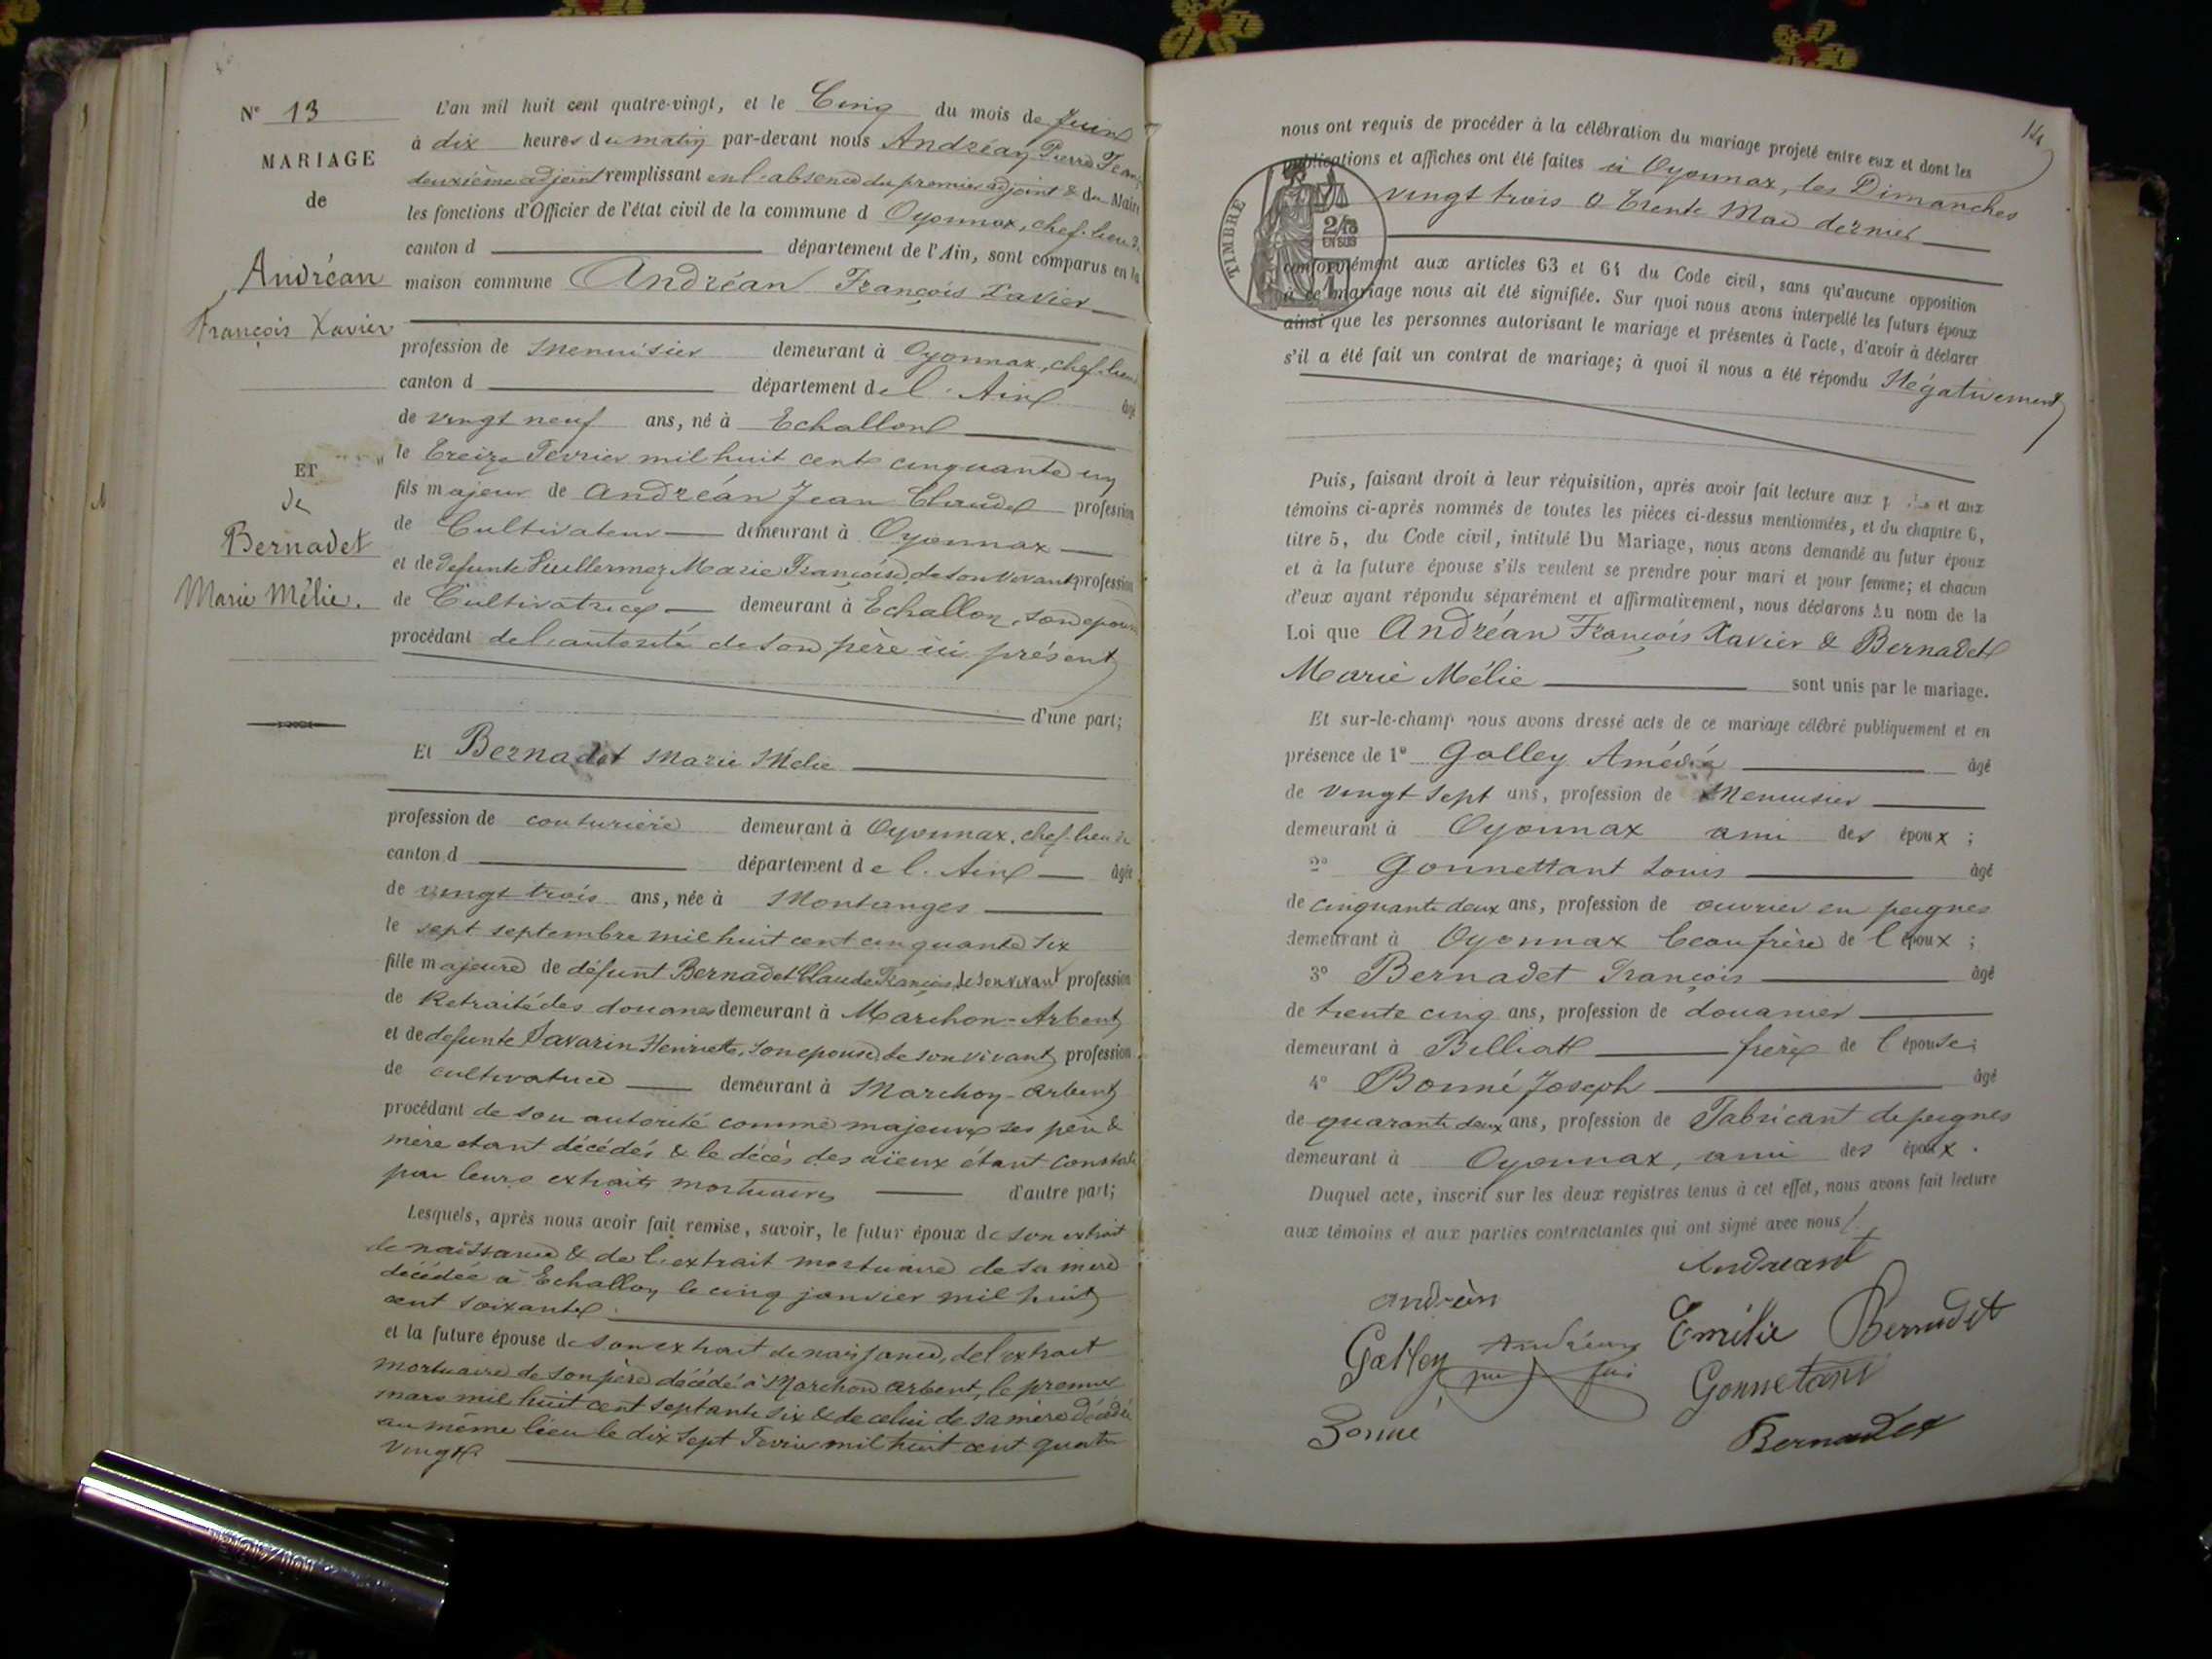 N° 13
MARIAGE
de
Andréan
François Xavier
ET
de
Bernadet
Marie Mélie.
L'an mil huit cent quatre-vingt, et le Cinq du mois de Juin
à dix heures du matin par-devant nous Andréan Pierre Jean,
deuxième adjoint remplissant en l'absence du premier adjoint & du Maire
les fonctions d'Officier de l'état civil de la commune d Oyonnax, chef-lieu de
canton d département de l'Ain, sont comparus en la
maison commune Andréan François Xavier
profession de menuisier demeurant à Oyonnax, chef-lieu
canton d département de l'Ain âgé
de vingt neuf ans, né à Echallon
le Treize Février mil huit cent cinquante un
fils majeur de Andréan Jean Claude profession
de Cultivateur demeurant à Oyonnax
et de défunte Marie Françoise, de son vivant profession
de Cultivatrice demeurant à Echallon, son épouse
procédant de l'autorité de son père ici présent
d'une part;
Et Bernadet Marie Mélie
profession de couturière demeurant à Oyonnax, chef-lieu de
canton d département de l'Ain âgée
de vingt trois ans, née à Montanges
le sept septembre mil huit cent cinquante six
fille majeure de défunt Bernadet Claude François, de son vivant profession
de Retraité des douanes demeurant à Marchon-Arbent
et de defunte Savarin Henriette, son épouse, de son vivant profession
de cultivatrice demeurant à Marchon-Arbent
procédant de son autorité comme majeure ses père &
mère etant décédés & le décès des aïeux étant constaté
par leurs extraits mortuaires d'autre part;
Lesquels, après nous avoir fait remise, savoir, le futur époux de son extrait
de naissance & de l'extrait mortuaire de sa mère
décédée à Echallon le cinq janvier mil huit
cent soixante
et la future épouse de son extrait de naissance, de l'extrait
mortuaire de son père décédé à Marchon Arbent, le premier
mars mil huit cent septante six & de celui de sa mère décédée
au même lieu le dix sept Février mil huit cent quatre
vingt
14
nous ont requis de procéder à la célébration du mariage projeté entre eux et dont les
publications et affiches ont été faites à Oyonnax, les Dimanches
vingt trois & trente Mai dernier
TIMBRE
2/10
EN SUS
conformément aux articles 63 et 64 du Code civil, sans qu'aucune opposition
à ce mariage nous ait été signifiée. Sur quoi nous avons interpellé les futurs époux
ainsi que les personnes autorisant le mariage et présentes à l'acte, d'avoir à déclarer
s'il a été fait un contrat de mariage; à quoi il nous a été répondu Négativement
Puis, faisant droit à leur réquisition, après avoir fait lecture aux et aux
témoins ci-après nommés de toutes les pièces ci-dessus mentionnées, et du chapitre 6,
titre 5, du Code civil, intitulé Du Mariage, nous avons demandé au futur époux
et à la future épouse s'ils veulent se prendre pour mari et pour femme; et chacun
d'eux ayant répondu séparément et affirmativement, nous déclarons au nom de la
Loi que Andréan François Xavier & Bernadet
Marie Mélie sont unis par le mariage.
Et sur-le-champ nous avons dressé acte de ce mariage célébré publiquement et en
présence de 1° Golley Amédé âgé
de vingt sept ans, profession de Menuisier
demeurant à Oyonnax ami des époux;
2° Gonnettant Louis âgé
de cinquante deux ans, profession de ouvrier en peignes
demeurant à Oyonnax beau frère de l'époux;
3° Bernadet François âgé
de trente cinq ans, profession de douanier
demeurant à Billiat frère de l'épouse;
4° Bonné Joseph âgé
de quarante deux ans, profession de Fabricant de peignes
demeurant à Oyonnax, ami des époux.
Duquel acte, inscrit sur les deux registres tenus à cet effet, nous avons fait lecture
aux témoins et aux parties contractantes qui ont signé avec nous/.
Andréant
Andréan
Emélie Bernadet
Galley
Andréan
Gonnetant
Bonne
Bernadet